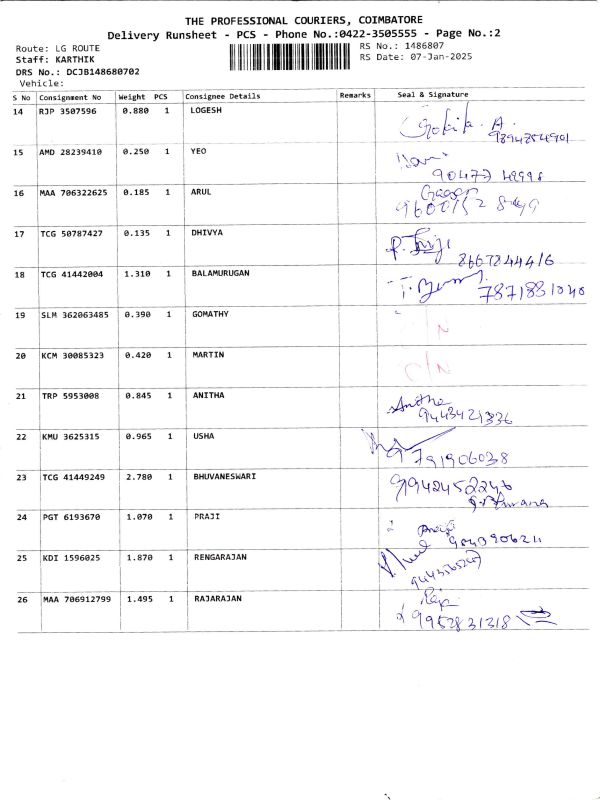 THE PROFESSIONAL COURIERS, COIMBATORE
Delivery Runsheet - PCS - Phone No.:0422-3505555 - Page No.:2
Route: LG ROUTE
RS No.: 1486807
Staff: KARTHIK
RS Date: 07-Jan-2025
DRS No.: DCJB148680702
Vehicle:
S No Consignment No Weight PCS Consignee Details Remarks Seal & Signature
14 RJP 3507596 0.880 1 LOGESH
15 AMD 28239410 0.250 1 YEO
16 MAA 706322625 0.185 1 ARUL
17 TCG 50787427 0.135 1 DHIVYA
18 TCG 41442004 1.310 1 BALAMURUGAN
7871881040
19 SLM 362063485 0.390 1 GOMATHY
20 KCM 30085323 0.420 1 MARTIN
C/N
21 TRP 5953008 0.845 1 ANITHA Anitha
9443421336
22 KMU 3625315 0.965 1 USHA
9791906038
23 TCG 41449249 2.780 1 BHUVANESWARI 9942452246
24 PGT 6193670 1.070 1 PRAJI
9843906211
25 KDI 1596025 1.870 1 RENGARAJAN
26 MAA 706912799 1.495 1 RAJARAJAN Raja
9952831318